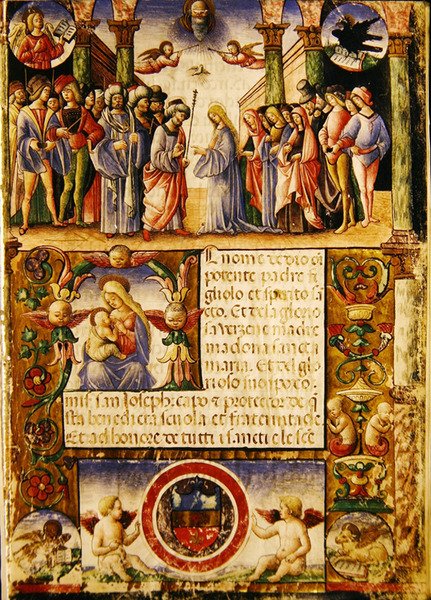 L nome de dio oi
potente padre fi
gliolo et sperito sa
cto. Et de la glorio
sa verzene madre
madona sancta
maria. Et del glo
rioso
san Joseph: capo et protector de q
sta benedecta scuola et fraternitade
Et ad honore de tutti i sancti e le sce